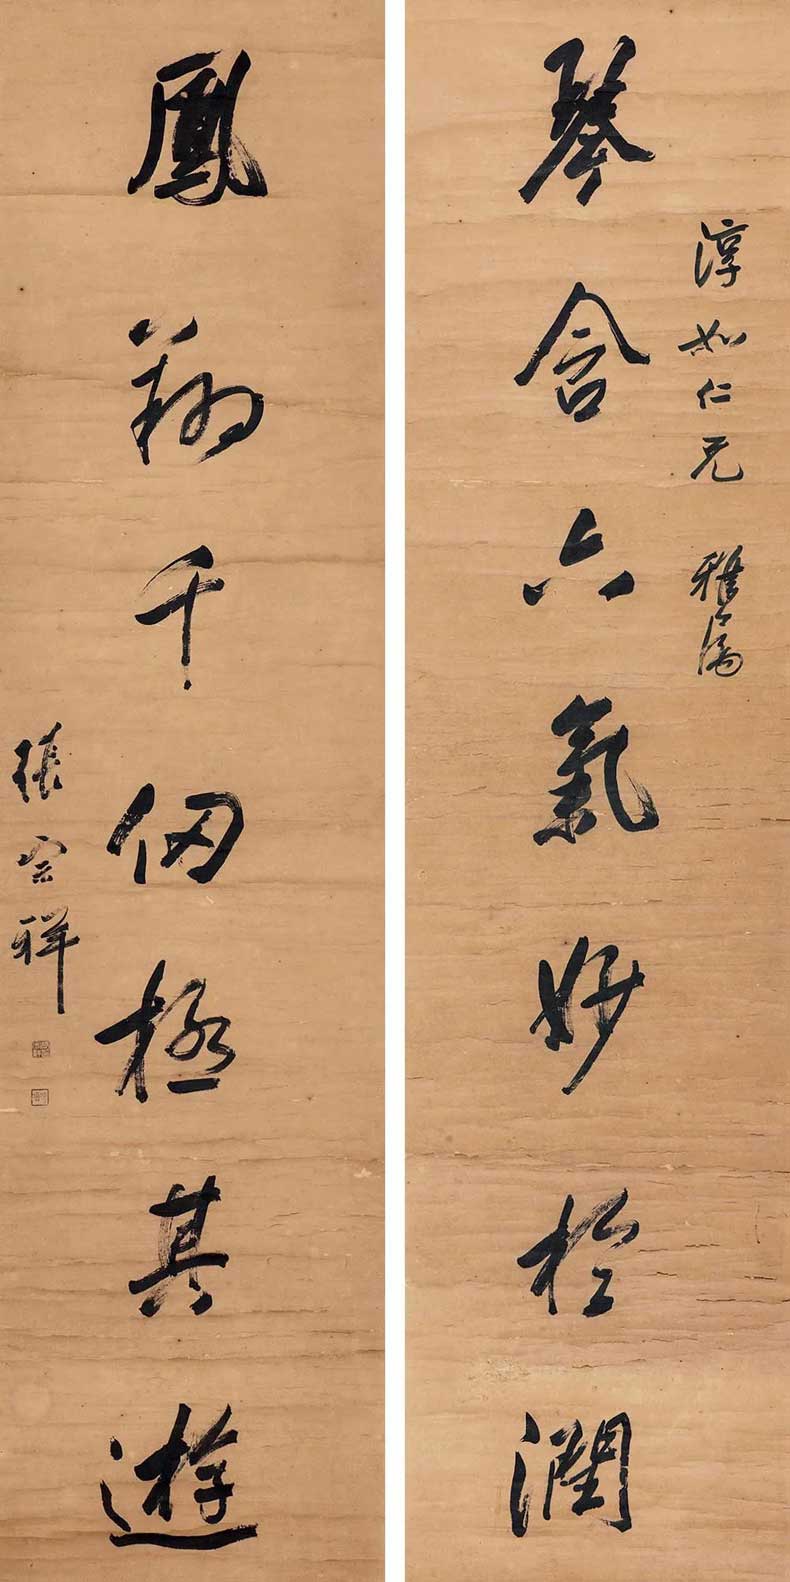 淳如仁兄 雅属
琴含六氣妙於潤
鳳翔千仞極其遊
張宗祥